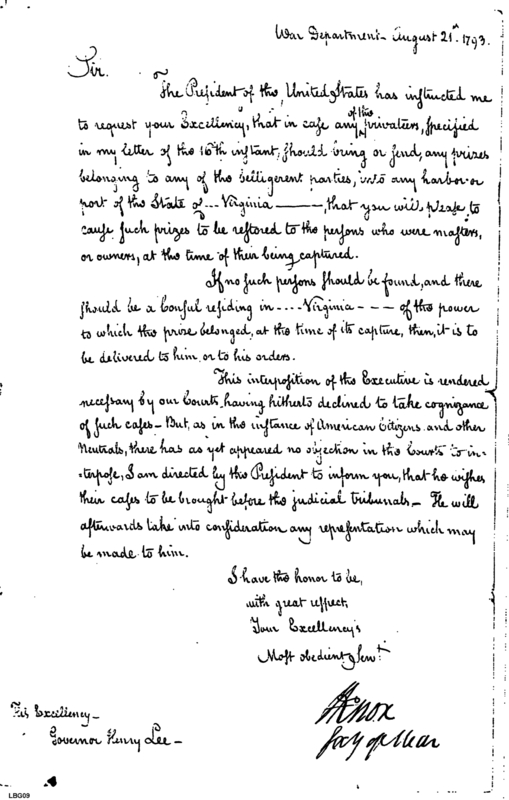 War Department – August 21st. 1793.
Sir.
The President of the United States has instructed me
to request your Excellency, that in case any of the privateers, specified
in my letter of the 16th instant, should bring or send, any prizes
belonging to any of the belligerent parties, into any harbor or
port of the State of ... Virginia ———, that you will please to
cause such prizes to be restored to the persons who were masters,
or owners, at the time of their being captured.
If no such persons should be found, and there
should be a Consul residing in .... Virginia – – – of the power
to which the prize belonged, at the time of its capture, then, it is to
be delivered to him or to his orders.
This interposition of the Executive is rendered
necessary by our Courts, having hitherto declined to take cognizance
of such cases – But, as in the instance of American Citizens and other
Neutrals, there has as yet appeared no objection in the Courts to in=
=terpose, I am directed by the President to inform you, that he wishes
their cases to be brought before the judicial tribunals – He will
afterwards take into consideration any representation which may
be made to him.
I have the honor to be,
with great respect,
Your Excellency's
Most obedient Servt.
HKnox
Secy of War
His Excellency –
Governor Henry Lee –
LBG09